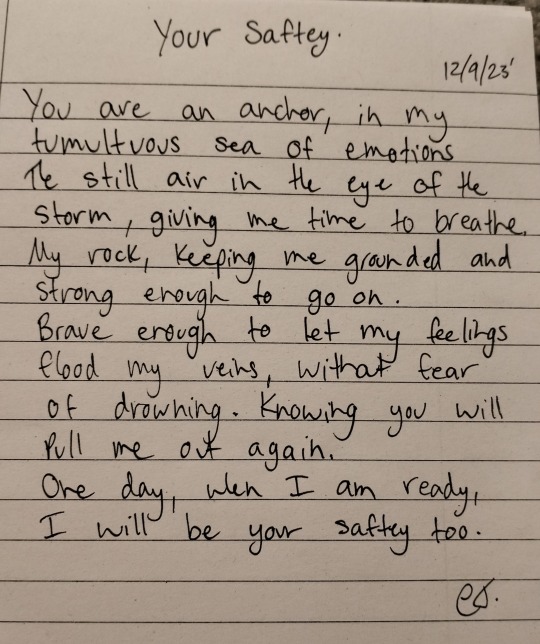 Your Saftey.
12/9/23'
You are an anchor, in my
tumultuous sea of emotions
The still air in the eye of the
storm, giving me time to breathe.
My rock, keeping me grounded and
strong enough to go on.
Brave enough to let my feelings
flood my veins, without fear
of drowning. Knowing you will
pull me out again.
One day, when I am ready,
I will be your saftey too.